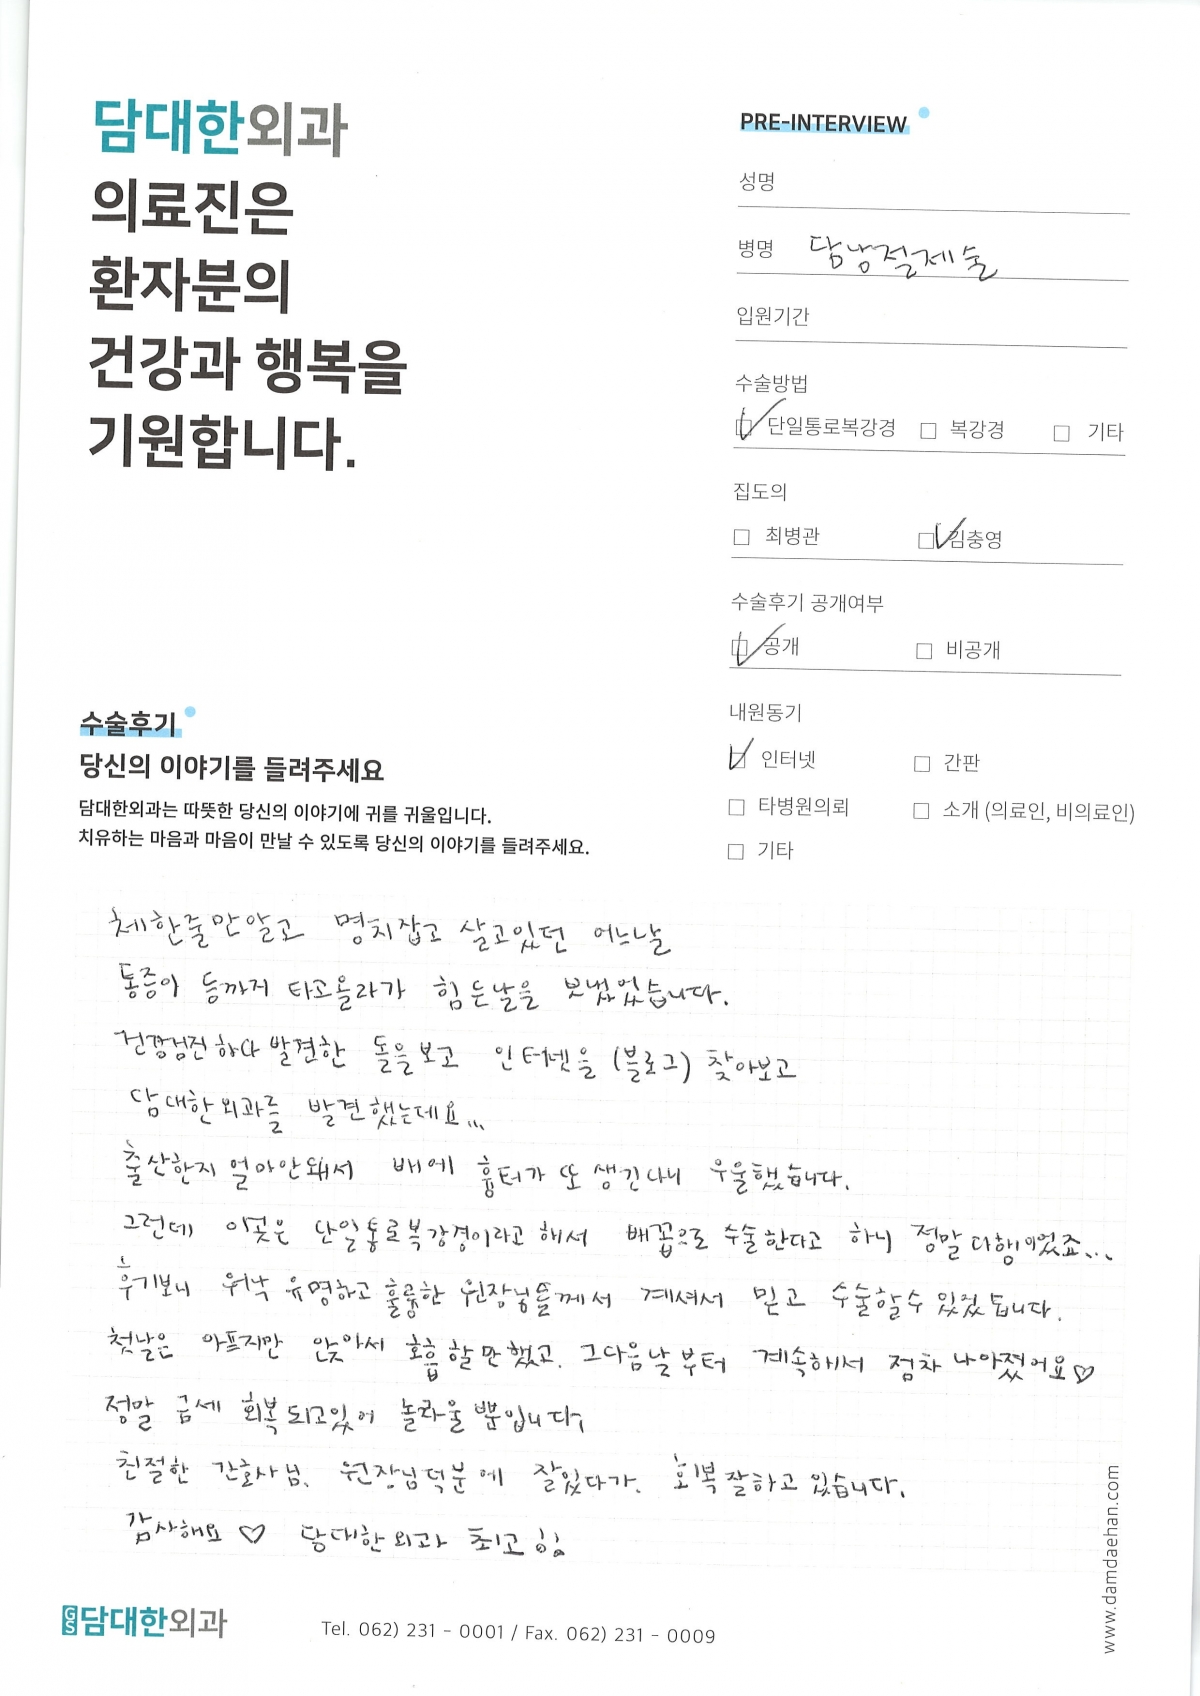 담대한외과
의료진은
환자분의
건강과 행복을
기원합니다.
PRE-INTERVIEW
성명
병명 담낭절제술
입원기간
수술방법
단일통로복강경 복강경 기타
집도의
최병관 김충영
수술후기 공개여부
공개 비공개
내원동기
인터넷 간판
타병원의뢰 소개 (의료인, 비의료인)
기타
수술후기
당신의 이야기를 들려주세요
담대한외과는 따뜻한 당신의 이야기에 귀를 귀울입니다.
치유하는 마음과 마음이 만날 수 있도록 당신의 이야기를 들려주세요.
체한줄만알고 명치잡고 살고있던 어느날
통증이 등까지 타고올라가 힘든날을 보냈었습니다.
건강검진 하다 발견한 돌을보고 인터넷을 (블로그) 찾아보고
담대한외과를 발견했는데요...
출산한지 얼마안돼서 배에 흉터가 또 생긴다니 우울했습니다.
그런데 이곳은 단일통로복강경이라고 해서 배꼽으로 수술한다고 하니 정말 다행이었죠...
후기보니 워낙 유명하고 훌륭한 원장님들께서 계셔서 믿고 수술할수 있었습니다.
첫날은 아프지만 앉아서 호흡할만했고. 그다음날부터 계속해서 점차 나아졌어요♡
정말 금세 회복되고있어 놀라울 뿐입니다;
친절한 간호사님, 원장님덕분에 잘있다가. 회복 잘하고 있습니다.
감사해요 ♡ 담대한외과 최고
GS 담대한외과
Tel. 062) 231 - 0001 / Fax. 062) 231 - 0009
www.damdaehan.com